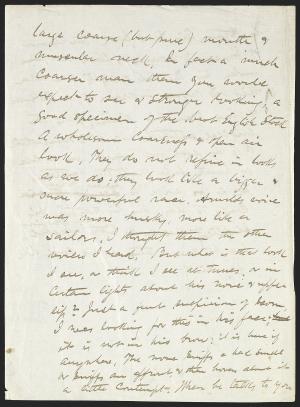 large coarse (but pure) mouth &
muscular neck. In fact a much
coarser man than you would
expect to see & stronger looking. a
good specimen of the best English stock
A wholesome coarseness & open air
look. They do not refine in looks
as we do; they look like a bigger &
more powerful race. Arnolds voice
was more husky, more like a
sailors, I thought than the other
voices I heard. But what is that look
I see, or think I see at times, or in
certain lights about his nose & upper
lip? Just a faint suspicion of scorn.
I was looking for this in his face;
it is not in his brow; it is here if
anywhere. The nose sniffs a bad smell
or sniffs an affront & then hovers about it
a little contempt. When he talks to you